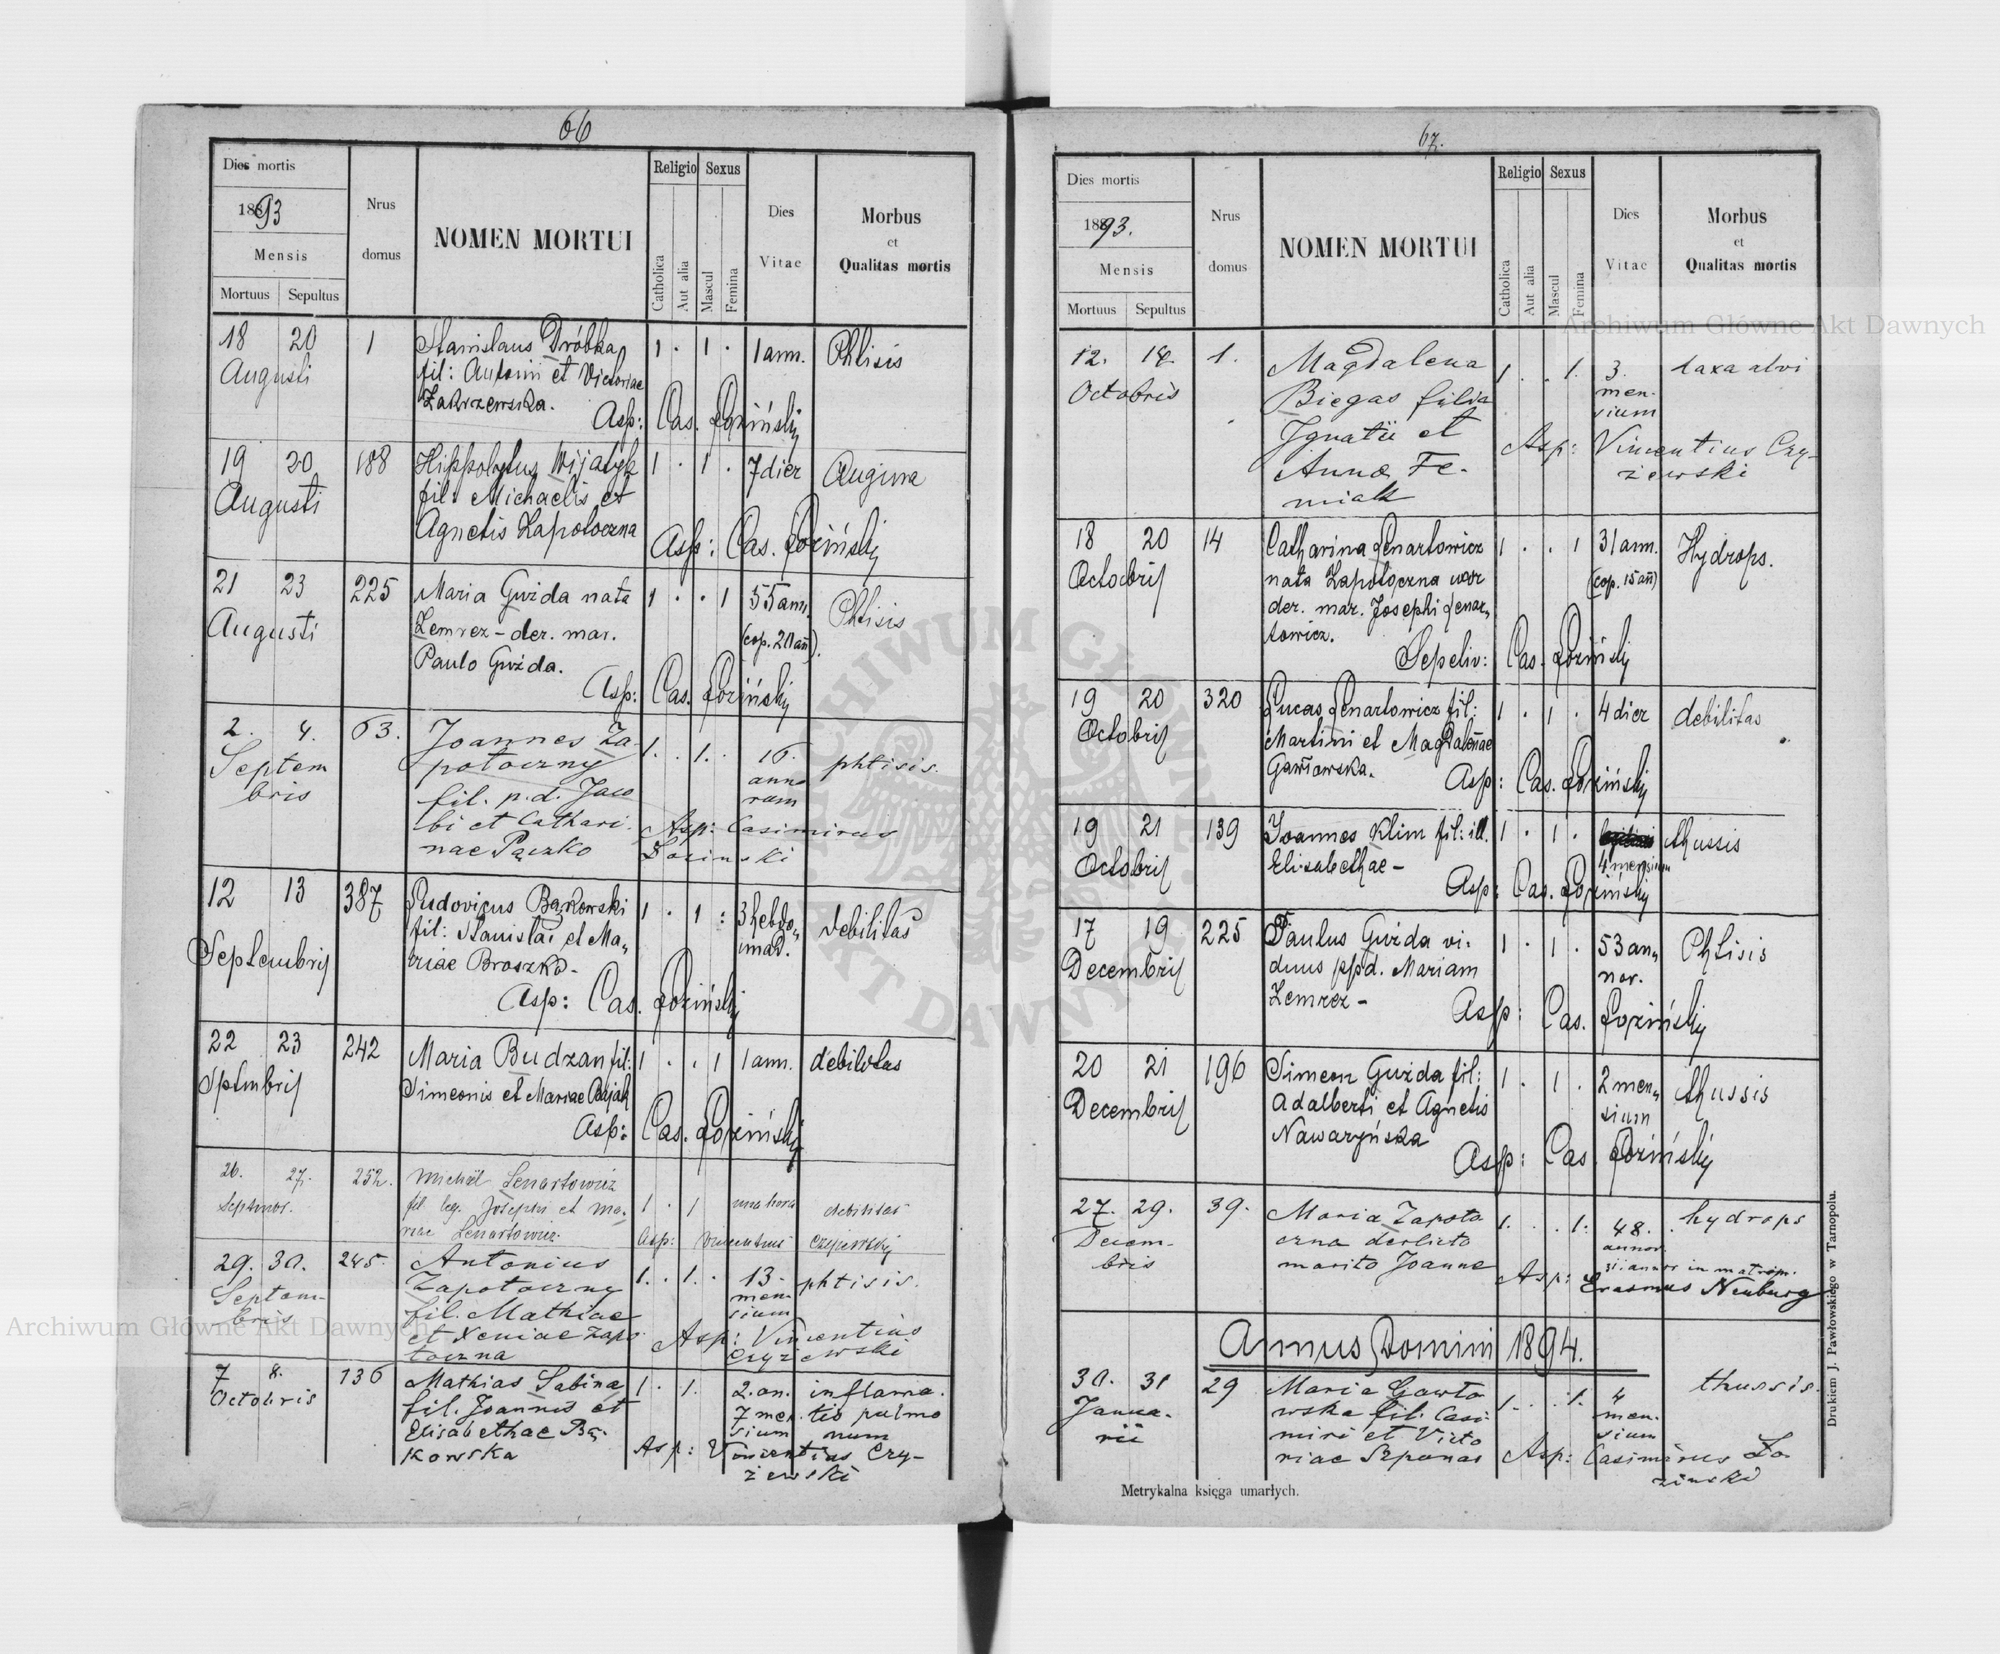 66
Dies mortis
1893
Mensis
Mortuus Sepultus
Nrus
domus
NOMEN MORTUI
Religio Sexus
Catholica
Aut alia
Mascul
Femina
Dies
Vitae
Morbus
et
Qualitas mortis
18 20 1 Stanislaus Dróbka 1 . 1 . 1 ann. Phtisis
Augusti fil: Antoni et Victoriae
Zakrzewska.
Asp: Cas. Łoziński
19 20 188 Hippolytus Wijatyk 1 . 1 . 7 dier Angina
Augusti fil: Michaelis et
Agnetis Zapotoczna
Asp: Cas. Łoziński
21 23 225 Maria Guzda nata 1 . . 1 55 ann. Phtisis
Augusti Zemrez - der. mar. (cop. 20 an̄).
Paulo Guzda.
Asp: Cas. Łoziński
2. 4. 63. Joannes Za- 1. . 1. . 16. phtisis.
Septem potoczny anno
bris fil. p.d. Jaco rum
bi et Cathari. Asp: Casimirus
nae Pączko Łozinski
12 13 387 Ludovicus Bąkowski 1 . 1 : 3 hebdo„ debilitas
Septembris fil: Stanislai et Ma„ mad.
riae Broszko -
Asp: Cas. Łoziński
22 23 242 Maria Budzan fil: 1 . . 1 1 ann. debilitas
Sptmbris Simeonis et Mariae Bajak
Asp: Cas. Łoziński
26. 27. 252. Michael Lenartowicz 1 . 1 una hora debilitas
Septmbr. fil. leg. Josephi et Ma-
riae Lenartowicz. Asp: Vincentius Czyżewski
29. 30. 245. Antonius 1. . 1. . 13. phtisis.
Septem- Zapotoczny men
bris fil. Mathiae sium
et Xeniae Zapo Asp: Vincentius
toczna Czyżewski
7 8. 136 Mathias Sabina 1 . 1. 2. an. inflama.
Octobris fil. Joannis et 7 men. tio pulmo
Elisabethae Bą- sium num
kowska Asp: Vincentius Czy-
żewski
67.
Dies mortis
1893.
Mensis
Mortuus Sepultus
Nrus
domus
NOMEN MORTUI
Religio Sexus
Catholica
Aut alia
Mascul
Femina
Dies
Vitae
Morbus
et
Qualitas mortis
12. 14. 1. Magdalena 1 . . 1. 3. laxa alvi
Octobris Biegas filia men-
Ignatii et sium
Annae Fe- Asp: Vincentius Czy-
niak żewski
18 20 14 Catharina Lenartowicz 1 . . 1 31 ann. Hydrops.
Octobris nata Zapotoczna uxor (cop. 15 an̄)
der. mar. Josephi Lenar„
towicz.
Sepeliv: Cas. Łoziński
19 20 320 Lucas Lenartowicz fil: 1 . 1 . 4 dier debilitas
Octobris Martini et Magdalenae
Gawłowska. Asp: Cas. Łoziński
19 21 139 Joannes Klim fil: ill. 1 . 1 . thussis
Octobris Elisabethae - 4 mensium
Asp: Cas. Łoziński
17 19 225 Paulus Guzda vi- 1 . 1 . 53 an„ Phtisis
Decembris duus ppd. Mariam nor.
Zemrez - Asp: Cas. Łoziński
20 21 196 Simeon Guzda fil: 1 . 1 . 2 men„ thussis
Decembris Adalberti et Agnetis sium
Nawaryńska
Asp: Cas. Łoziński
27. 29. 39. Maria Zapoto 1. . . 1. 48. hydrops
Decem- czna derlicto annor.
bris marito Joanne 31 annor in matrim.
Asp: Erasmus Neuburg
Annus Domini 1894.
30. 31 29 Maria Gawło 1. . . 1. 4 thussis.
Janua- wska fil. Casi- men-
rii miri et Victo sium
riae Szponar Asp: Casimirus Ło-
zinski
Metrykalna księga umarłych.
Drukiem J. Pawłowskiego w Tarnopolu.
Archiwum Główne Akt Dawnych
Archiwum Główne Akt Dawnych
ARCHIWUM GŁÓWNE AKT DAWNYCH